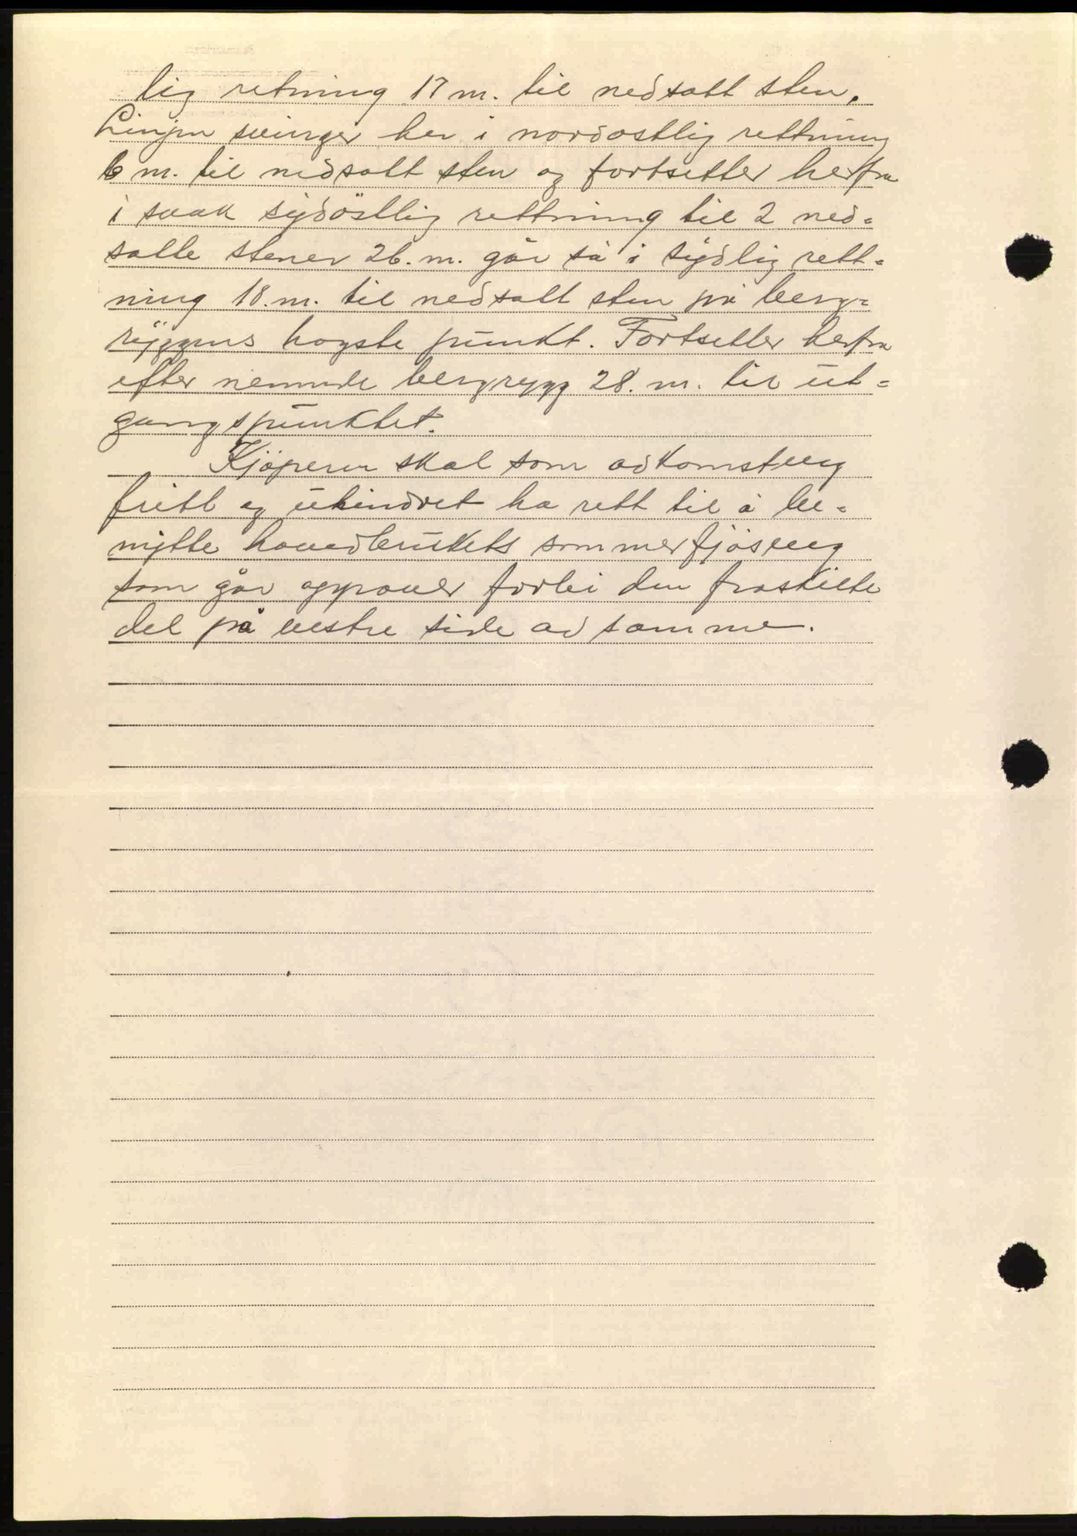 lig retning 17 m. til nedsatt sten.
Linjen svinger her i nordostlig rettning
6 m. til nedsatt sten og fortsetter herfra
i svak sydöstlig rettning til 2 ned=
satte stener 26. m. går så i sydlig rett=
ning 18. m. til nedsatt sten på berg=
ryggens hogste punkt. Fortsetter herfra
efter nemnde bergrygg 28. m. til ut=
gangspunktet.
Kjöperen skal som adkomstveg
fritt og uhindret ha rett til å be=
nytte hovedbrukets sommerfjösveg
som går oppover forbi den fraskilte
del på vestre side av samme.